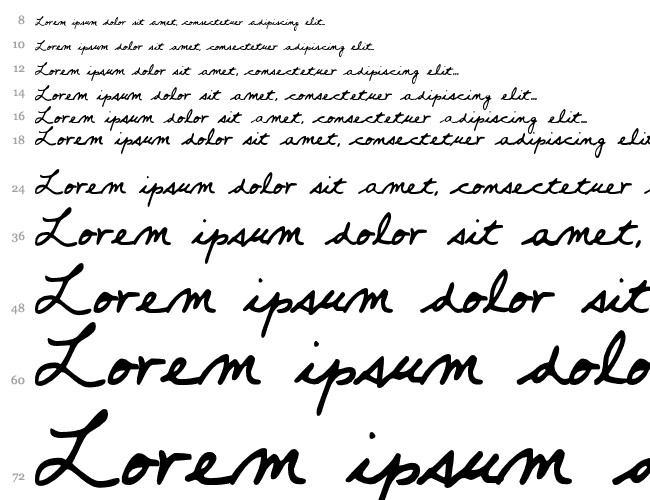 8 Lorem ipsum dolor sit amet, consectetuer adipiscing elit.
10 Lorem ipsum dolor sit amet, consectetuer adipiscing elit.
12 Lorem ipsum dolor sit amet, consectetuer adipiscing elit...
14 Lorem ipsum dolor sit amet, consectetuer adipiscing elit...
16 Lorem ipsum dolor sit amet, consectetuer adipiscing elit...
18 Lorem ipsum dolor sit amet, consectetuer adipiscing elit
24 Lorem ipsum dolor sit amet, consectetuer
36 Lorem ipsum dolor sit amet,
48 Lorem ipsum dolor sit
60 Lorem ipsum dolo
72 Lorem ipsum